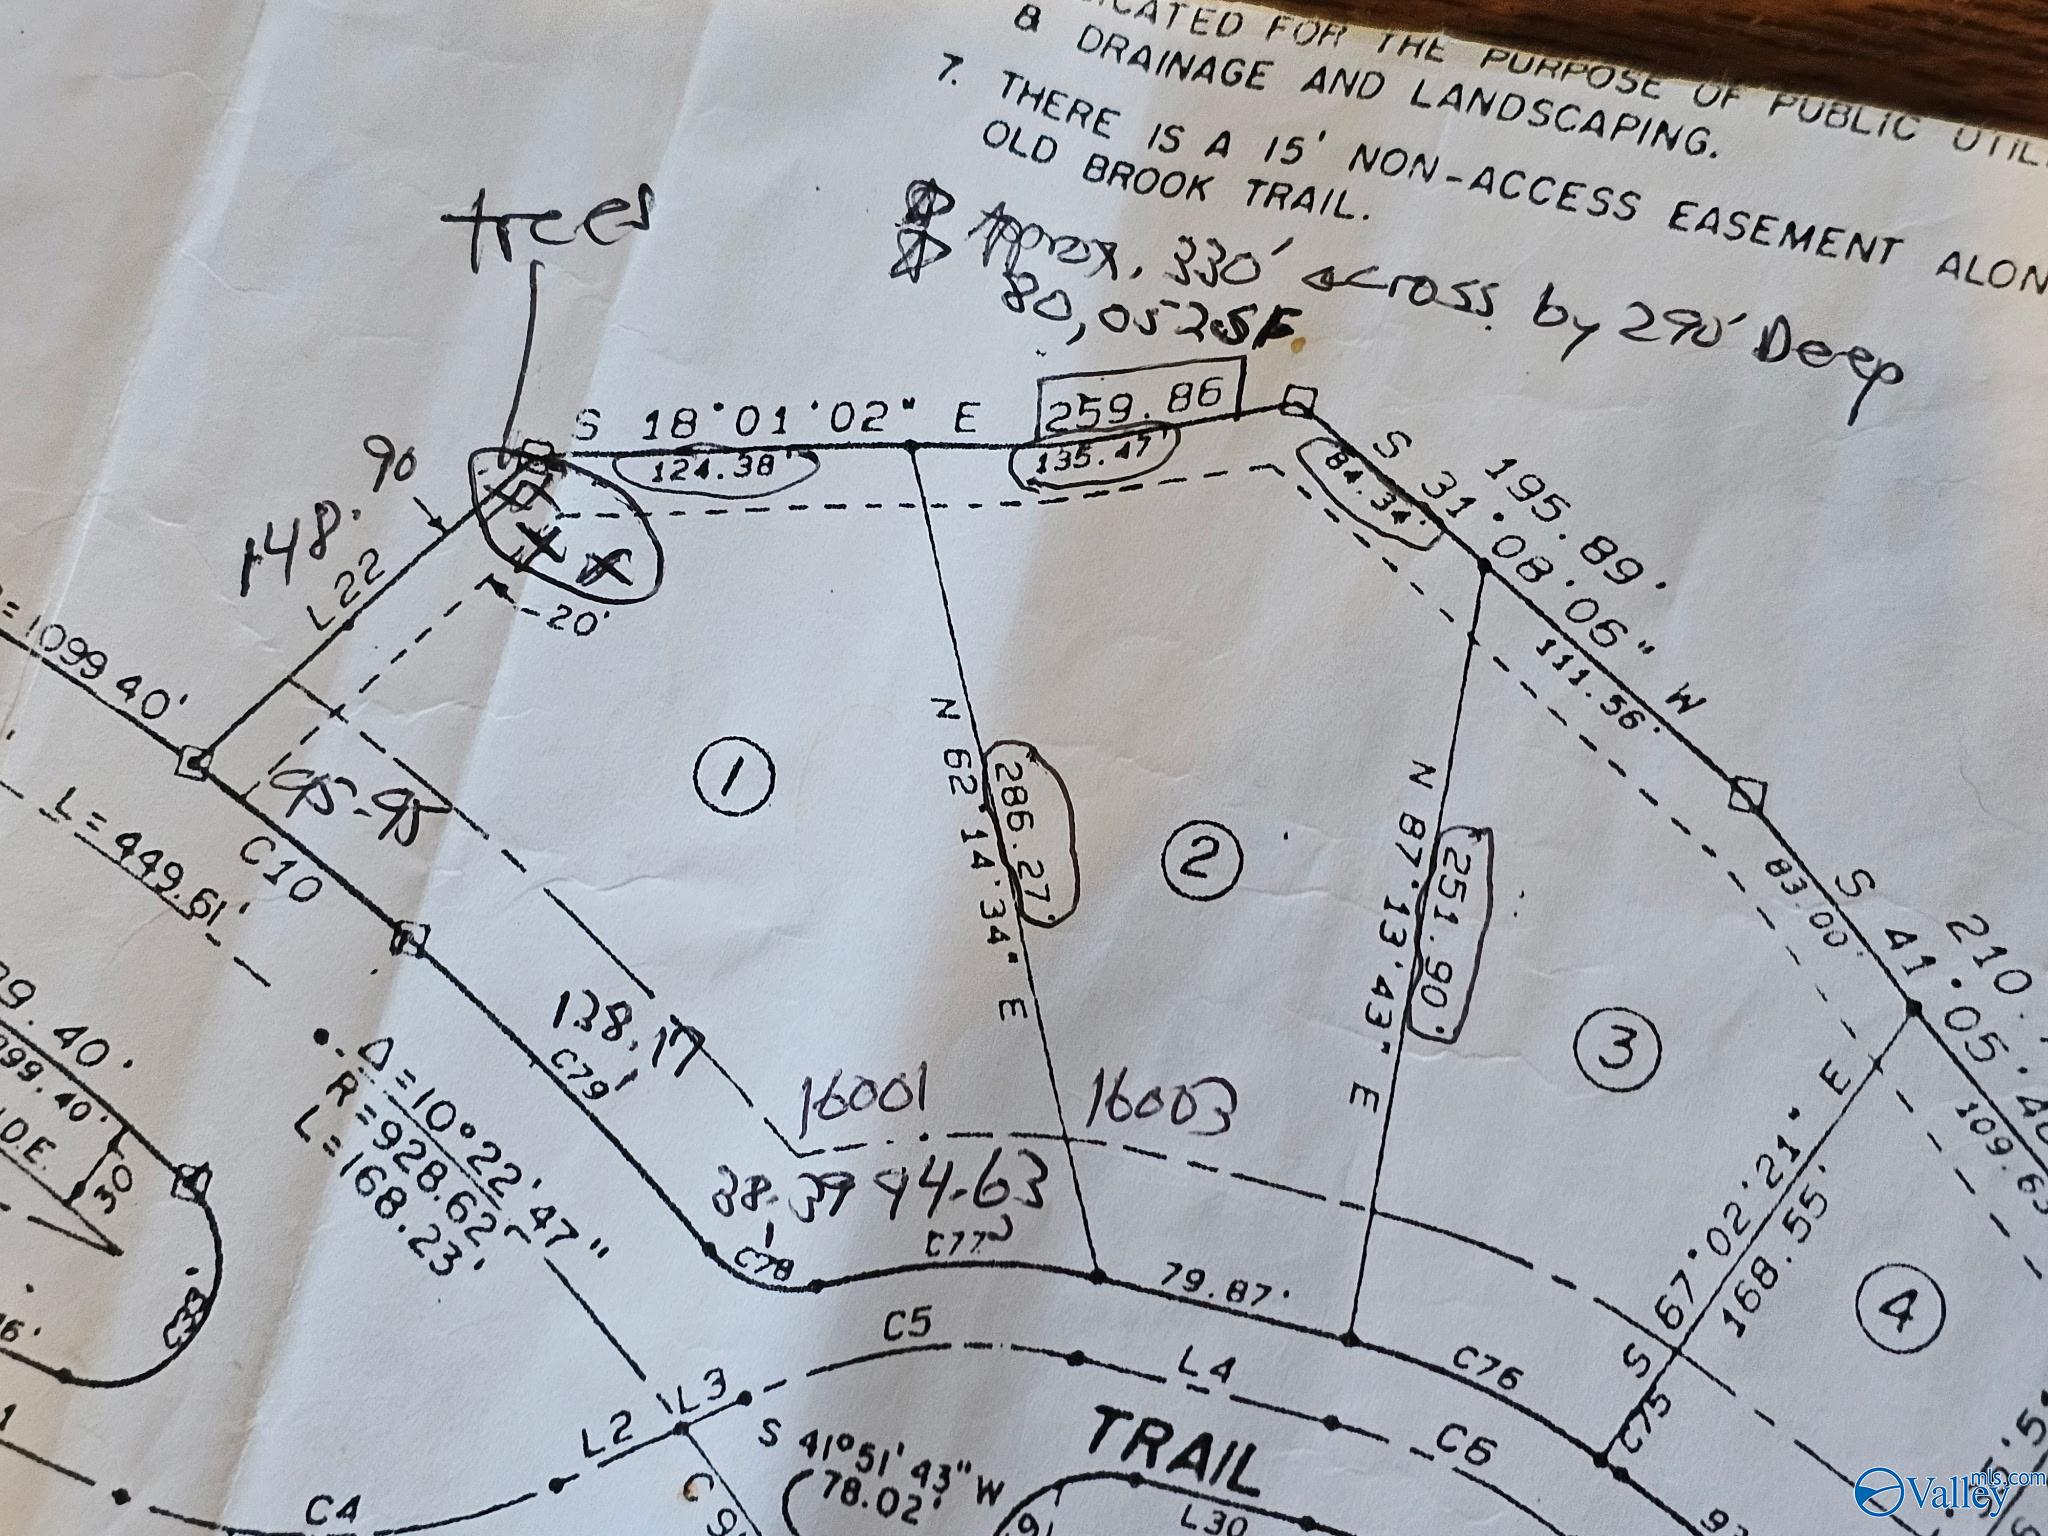 ICATED FOR THE PURPOSE OF PUBLIC UTIL
& DRAINAGE AND LANDSCAPING.
7. THERE IS A 15' NON-ACCESS EASEMENT ALON
OLD BROOK TRAIL.
trees
Approx. 330' across by 290' Deep
80,052 SF.
S 18°01'02" E
259.86
124.38'
135.47'
84.34'
S 31°08'06" W
195.89'
111.56'
148.90
L22
20'
1099.40'
C10
L=449.61'
1
N 62°14'34" E
286.27'
2
N 87°13'43" E
251.90'
3
83.00
S 41°05'
210.
109.63
138.17
C79
16001
16003
38.39
94.63
C78
C77
79.87'
C76
C75
S 67°02'21" E
168.55'
4
Δ=10°22'47"
R=928.62'
L=168.23'
9.40'
99.40'
D.E.
30
C33
C5
L4
C6
L3
L2
C4
S 41°51'43" W
78.02'
TRAIL
L30
Valleymls.com